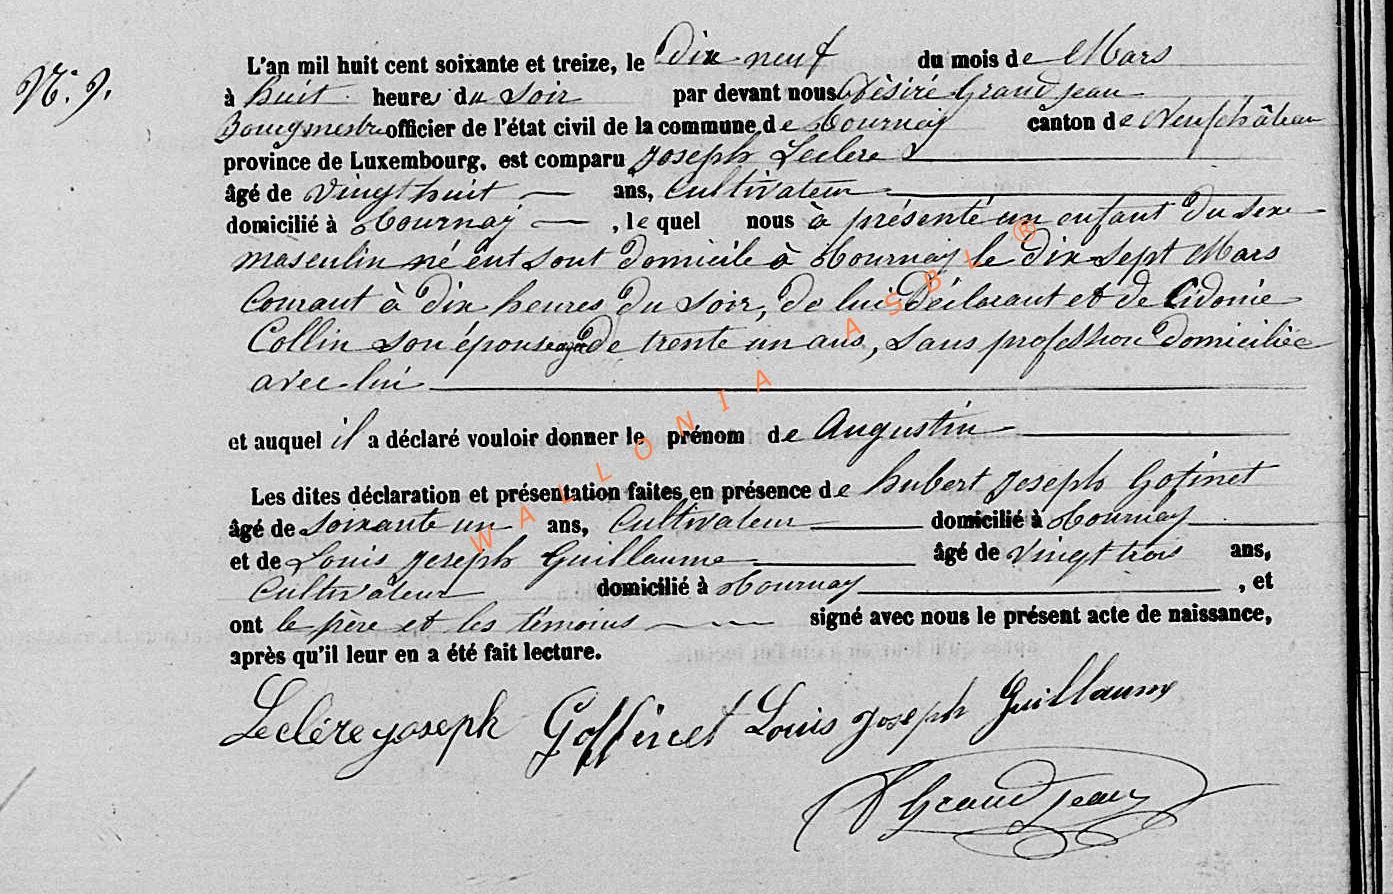 N.° 9.
L'an mil huit cent soixante et treize, le Dix neuf du mois de Mars
à huit heures du Soir par devant nous Désiré Grandjean
Bourgmestre officier de l'état civil de la commune de Tournay canton de Neufchâteau
province de Luxembourg, est comparu Joseph Leclere
âgé de vingt huit ans, Cultivateur
domicilié à Tournay, le quel nous à présenté un enfant du sexe
masculin né ent sont domicile à Tournay le dix sept Mars
Courant à dix heures du soir, de lui Déclarant et de Cidonie
Collin son épouse agée de trente un ans, sans profession domiciliée
avec lui
et auquel il a déclaré vouloir donner le prénom de Augustin
Les dites déclaration et présentation faites en présence de hubert Joseph Gofinet
âgé de soixante un ans, Cultivateur domicilié à Tournay
et de Louis Joseph Guillaume âgé de vingt trois ans,
Cultivateur domicilié à Tournay, et
ont le père et les témoins signé avec nous le présent acte de naissance,
après qu'il leur en a été fait lecture.
Leclére joseph Goffinet Louis Joseph Guillaume
D Grandjean
WALLONIA ASBL ®